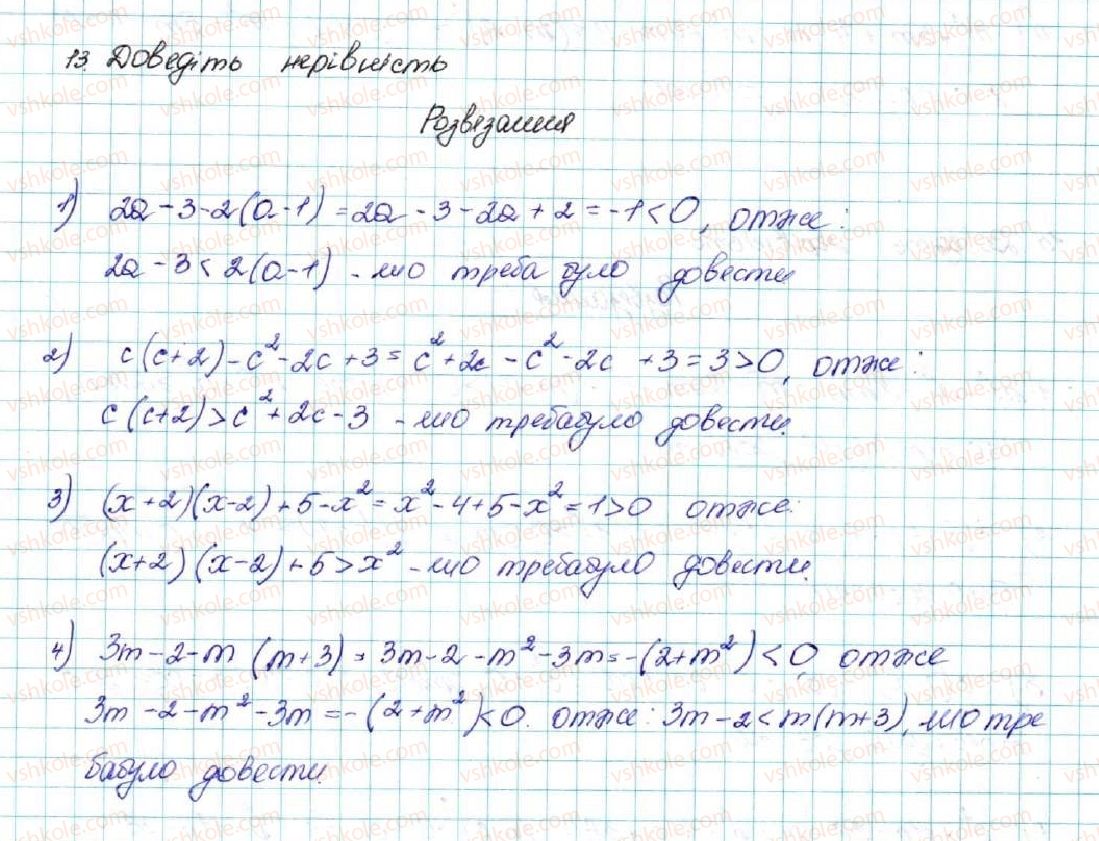 13. Доведіть нерівність
Розвязання
1) 2a - 3 - 2(a - 1) = 2a - 3 - 2a + 2 = -1 < 0, отже:
2a - 3 < 2(a - 1) - що треба було довести
2) c(c + 2) - c² - 2c + 3 = c² + 2c - c² - 2c + 3 = 3 > 0, отже:
c(c + 2) > c² + 2c - 3 - що требабуло довести.
3) (x + 2)(x - 2) + 5 - x² = x² - 4 + 5 - x² = 1 > 0 отже:
(x + 2)(x - 2) + 5 > x² - що требабуло довести.
4) 3m - 2 - m(m + 3) = 3m - 2 - m² - 3m = -(2 + m²) < 0, отже
3m - 2 - m² - 3m = -(2 + m²) < 0. отже: 3m - 2 < m(m + 3), що тре
бабуло довести.
vshkole.com